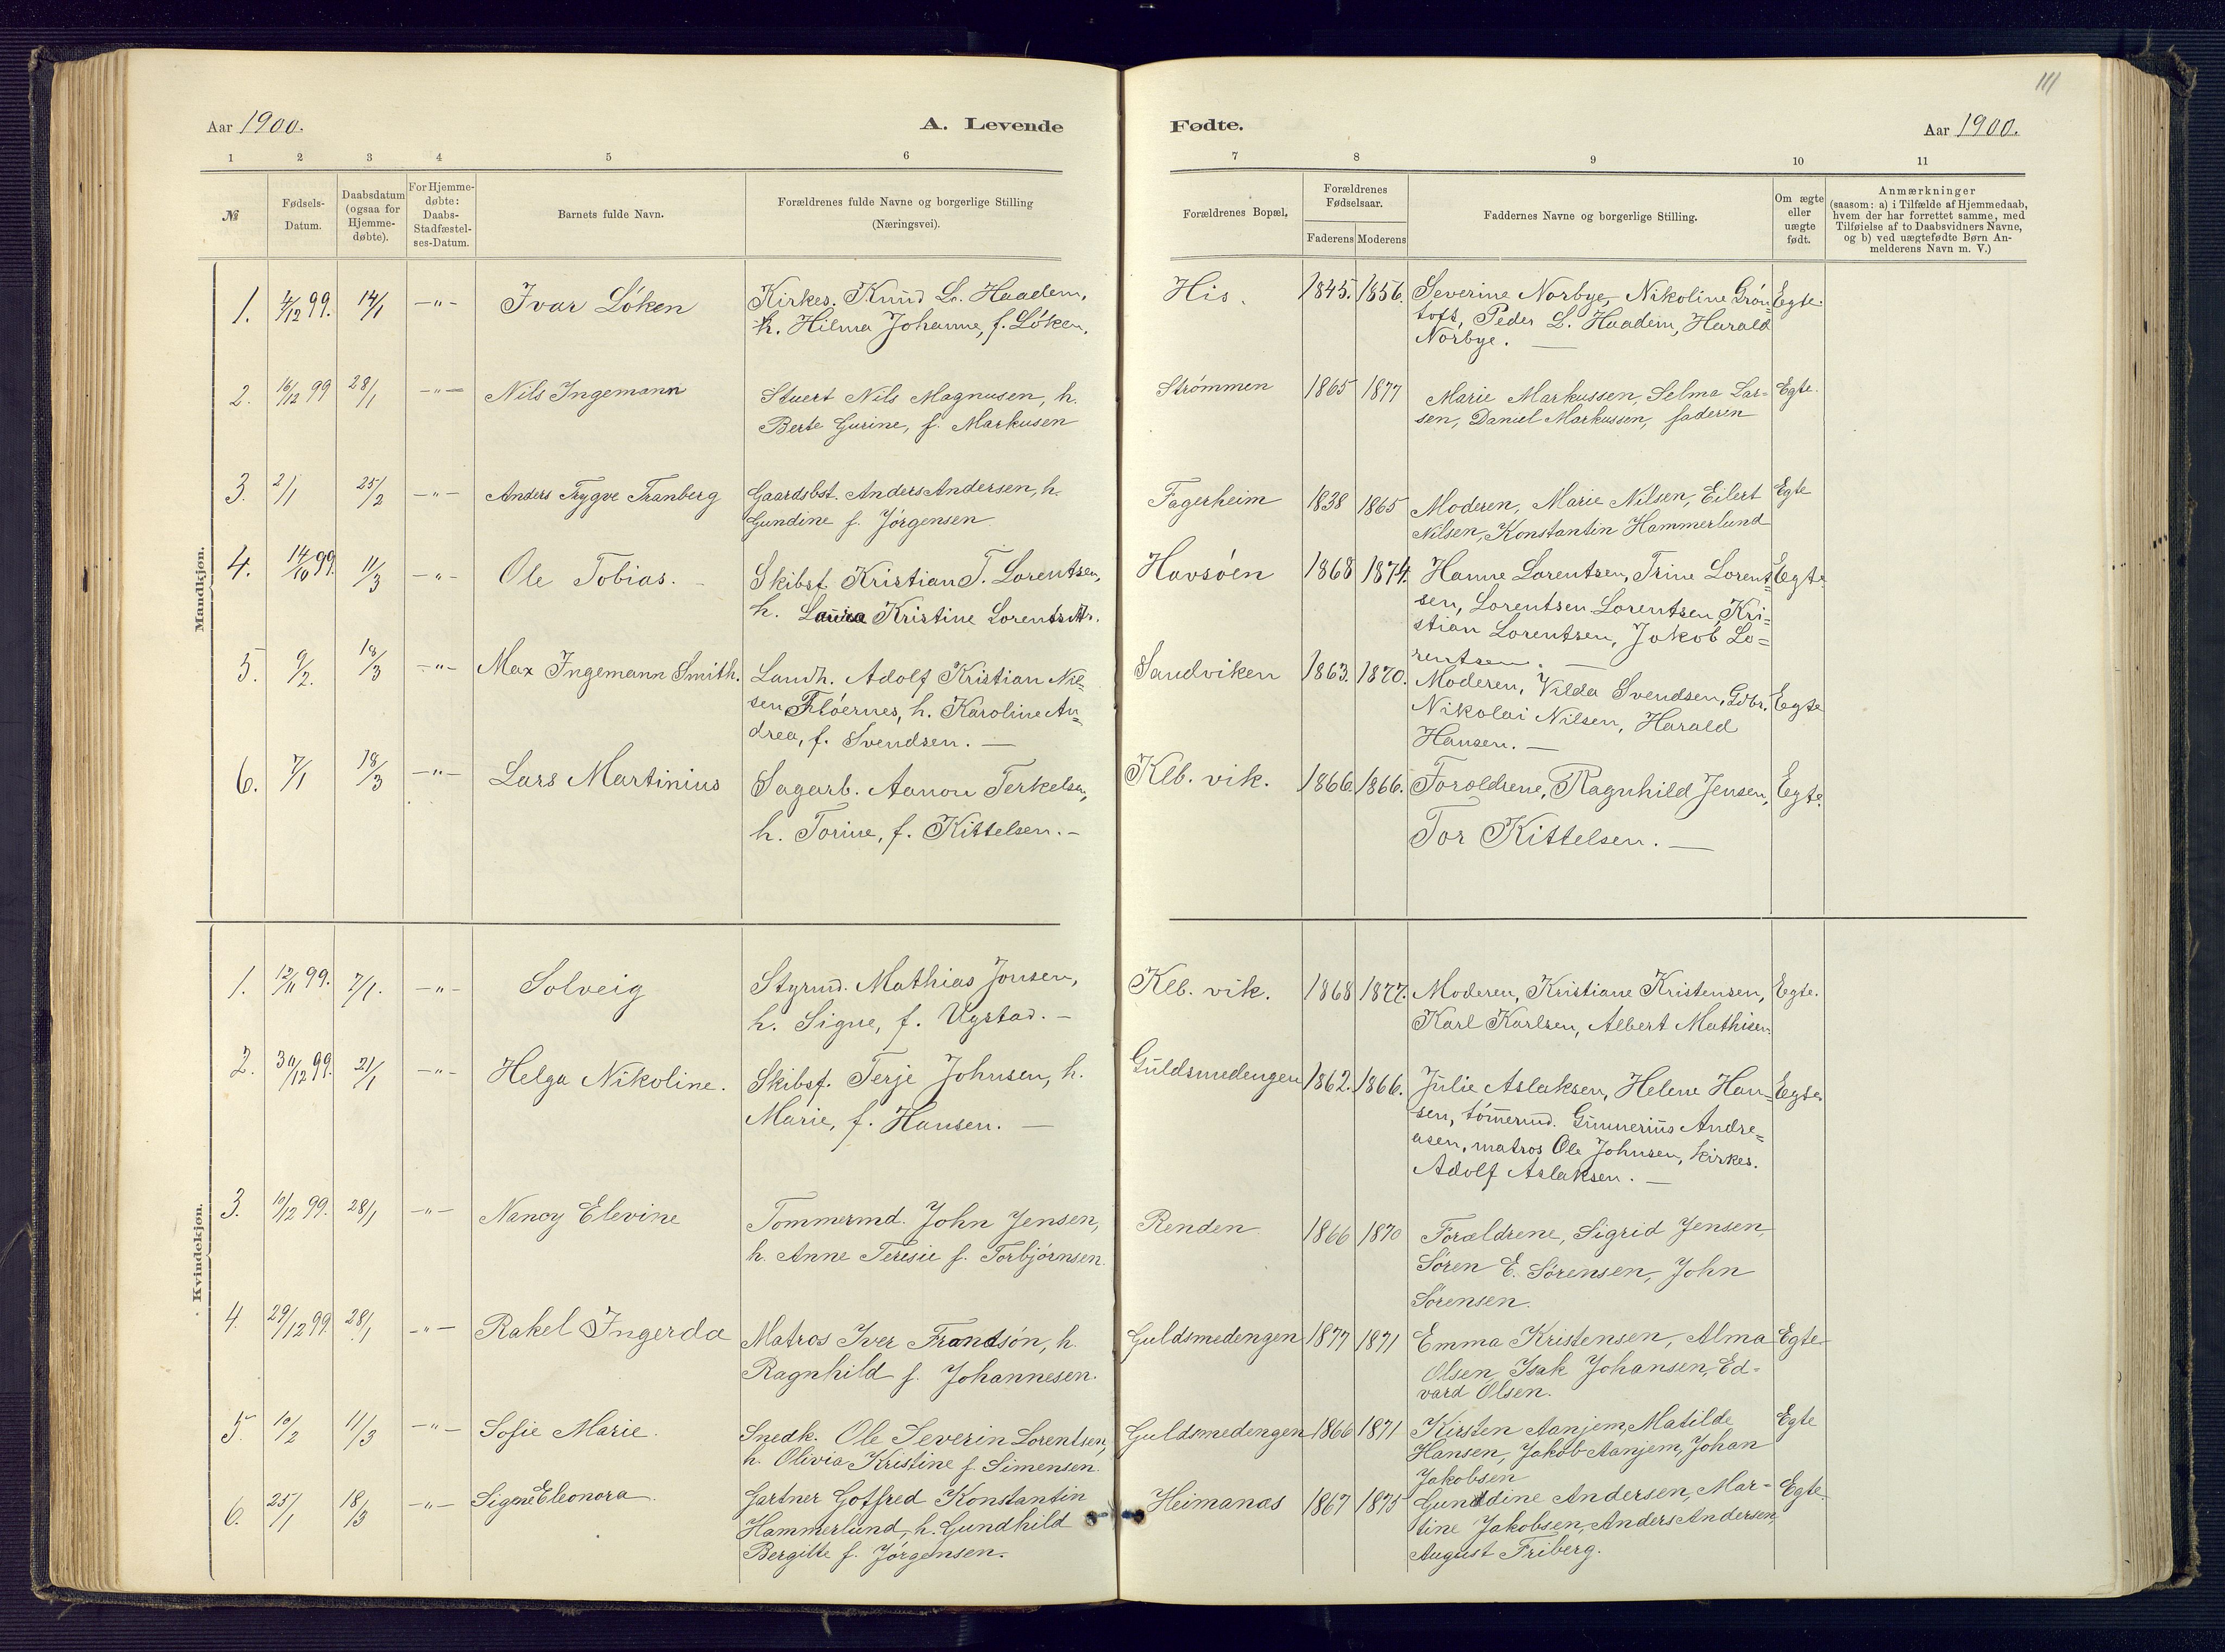 111
Aar 1900.
A. Levende
Fødte.
Aar 1900.
1 2 3 4 5 6 7 8 9 10 11
№
Fødsels-
Datum.
Daabsdatum
(ogsaa for
Hjemme-
døbte).
For Hjemme-
døbte:
Daabs-
Stadfæstel-
ses-Datum.
Barnets fulde Navn.
Forældrenes fulde Navne og borgerlige Stilling
(Næringsvei).
Forældrenes Bopæl.
Forældrenes
Fødselsaar.
Faderens Moderens
Faddernes Navne og borgerlige Stilling.
Om ægte
eller
uægte
født.
Anmærkninger
(saasom: a) i Tilfælde af Hjemmedaab,
hvem der har forrettet samme, med
Tilføielse af to Daabsvidners Navne,
og b) ved uægtefødte Børn An-
melderens Navn m. V.)
Mandkjøn.
1. 4/12 99. 14/1 -"- Ivar Löken
Kirkes. Knud L. Haadem,
h. Hilma Johanne, f. Löken.
His. 1845. 1856.
Severine Norbye, Nikoline Grön-
toft, Peder L. Haadem, Harald
Norbye. —
Egte.
2. 16/12 99 28/1 -"- Nils Ingemann
Stuert Nils Magnusen, h.
Berte Gurine, f. Markusen
Strömmen 1865 1877
Marie Markussen, Selma Lar-
sen, Daniel Markussen, faderen
Egte.
3. 2/1 25/2 -"- Anders Trygve Tranberg
Gaardsbst. Anders Andersen, h.
Gundine f. Jörgensen
Fagerheim 1838 1865
Moderen, Marie Nilsen, Eilert
Nilsen, Konstantin Hammerlund
Egte
4. 14/10 99. 11/3 -"- Ole Tobias. -
Skibsf. Kristian T. Lorentsen,
h. Laura Kristine Lorentsdtr.
Havsöen 1868 1874.
Hanne Lorentsen, Trine Lorent-
sen, Lorentsen Lorentsen, Kri-
stian Lorentsen, Jakob Lo-
rentsen. —
Egte.
5. 9/2. 18/3 -"- Max Ingemann Smith.
Landh. Adolf Kristian Nil-
sen Flöernes, h. Karoline An-
drea, f. Svendsen. —
Sandviken 1863. 1870.
Moderen, Vilda Svendsen, Gdbr.
Nikolai Nilsen, Harald
Hansen. —
Egte
6. 7/1 18/3 -"- Lars Martinius
Sagarb. Aanon Terkelsen,
h. Torine, f. Kittelsen. -
Klb. vik. 1866. 1866.
Foroldrene, Ragnhild Jensen,
Tor Kittelsen. —
Egte.
Kvindekjøn.
1. 12/11 99. 7/1. -"- Solveig
Styrmd. Mathias Jonsen,
h. Signe, f. Ugstad. -
Klb. vik. 1868 1877.
Moderen, Kristiane Kristensen,
Karl Karlsen, Albert Mathisen
Egte.
2. 30/12 99. 21/1 -"- Helga Nikoline.
Skibsf. Terje Johnsen, h.
Marie, f. Hansen. —
Guldsmedengen 1862. 1866.
Julie Aslaksen, Helene Han-
sen, tömermd. Gunnerius Andre-
asen, matros Ole Johnsen, kirkes.
Adolf Aslaksen. —
Egte.
3. 10/12 99. 28/1 -"- Nancy Elevine
Tommermd. John Jensen,
h. Anne Teresie f. Torbjörnsen.
Renden 1866 1870
Forældrene, Sigrid Jensen,
Sören E. Sörensen, John
Sörensen.
4. 29/12 99. 28/1 -"- Rakel Ingerda
Matros Iver Frantsön, h.
Ragnhild f. Johannesen.
Guldsmedengen 1877 1871
Emma Kristensen, Alma
Olsen, Isak Johansen, Ed-
vard Olsen.
Egte
5. 10/2 11/3 -"- Sofie Marie.
Snedk. Ole Severin Lorentsen,
h. Olivia Kristine f. Simensen.
Guldsmedengen 1866 1871
Kirsten Aanjem, Matilde
Hansen, Jakob Aanjem, Johan
Jakobsen
Egte
6. 25/1 18/3 -"- Signe Eleonora.
Gartner Gotfred Konstantin
Hammerlund, h. Gundhild
Bergitte f. Jörgensen.
Heimanas 1867 1875
Gundine Andersen, Mar-
tine Jakobsen, Anders Andersen,
August Friberg.
Egte.